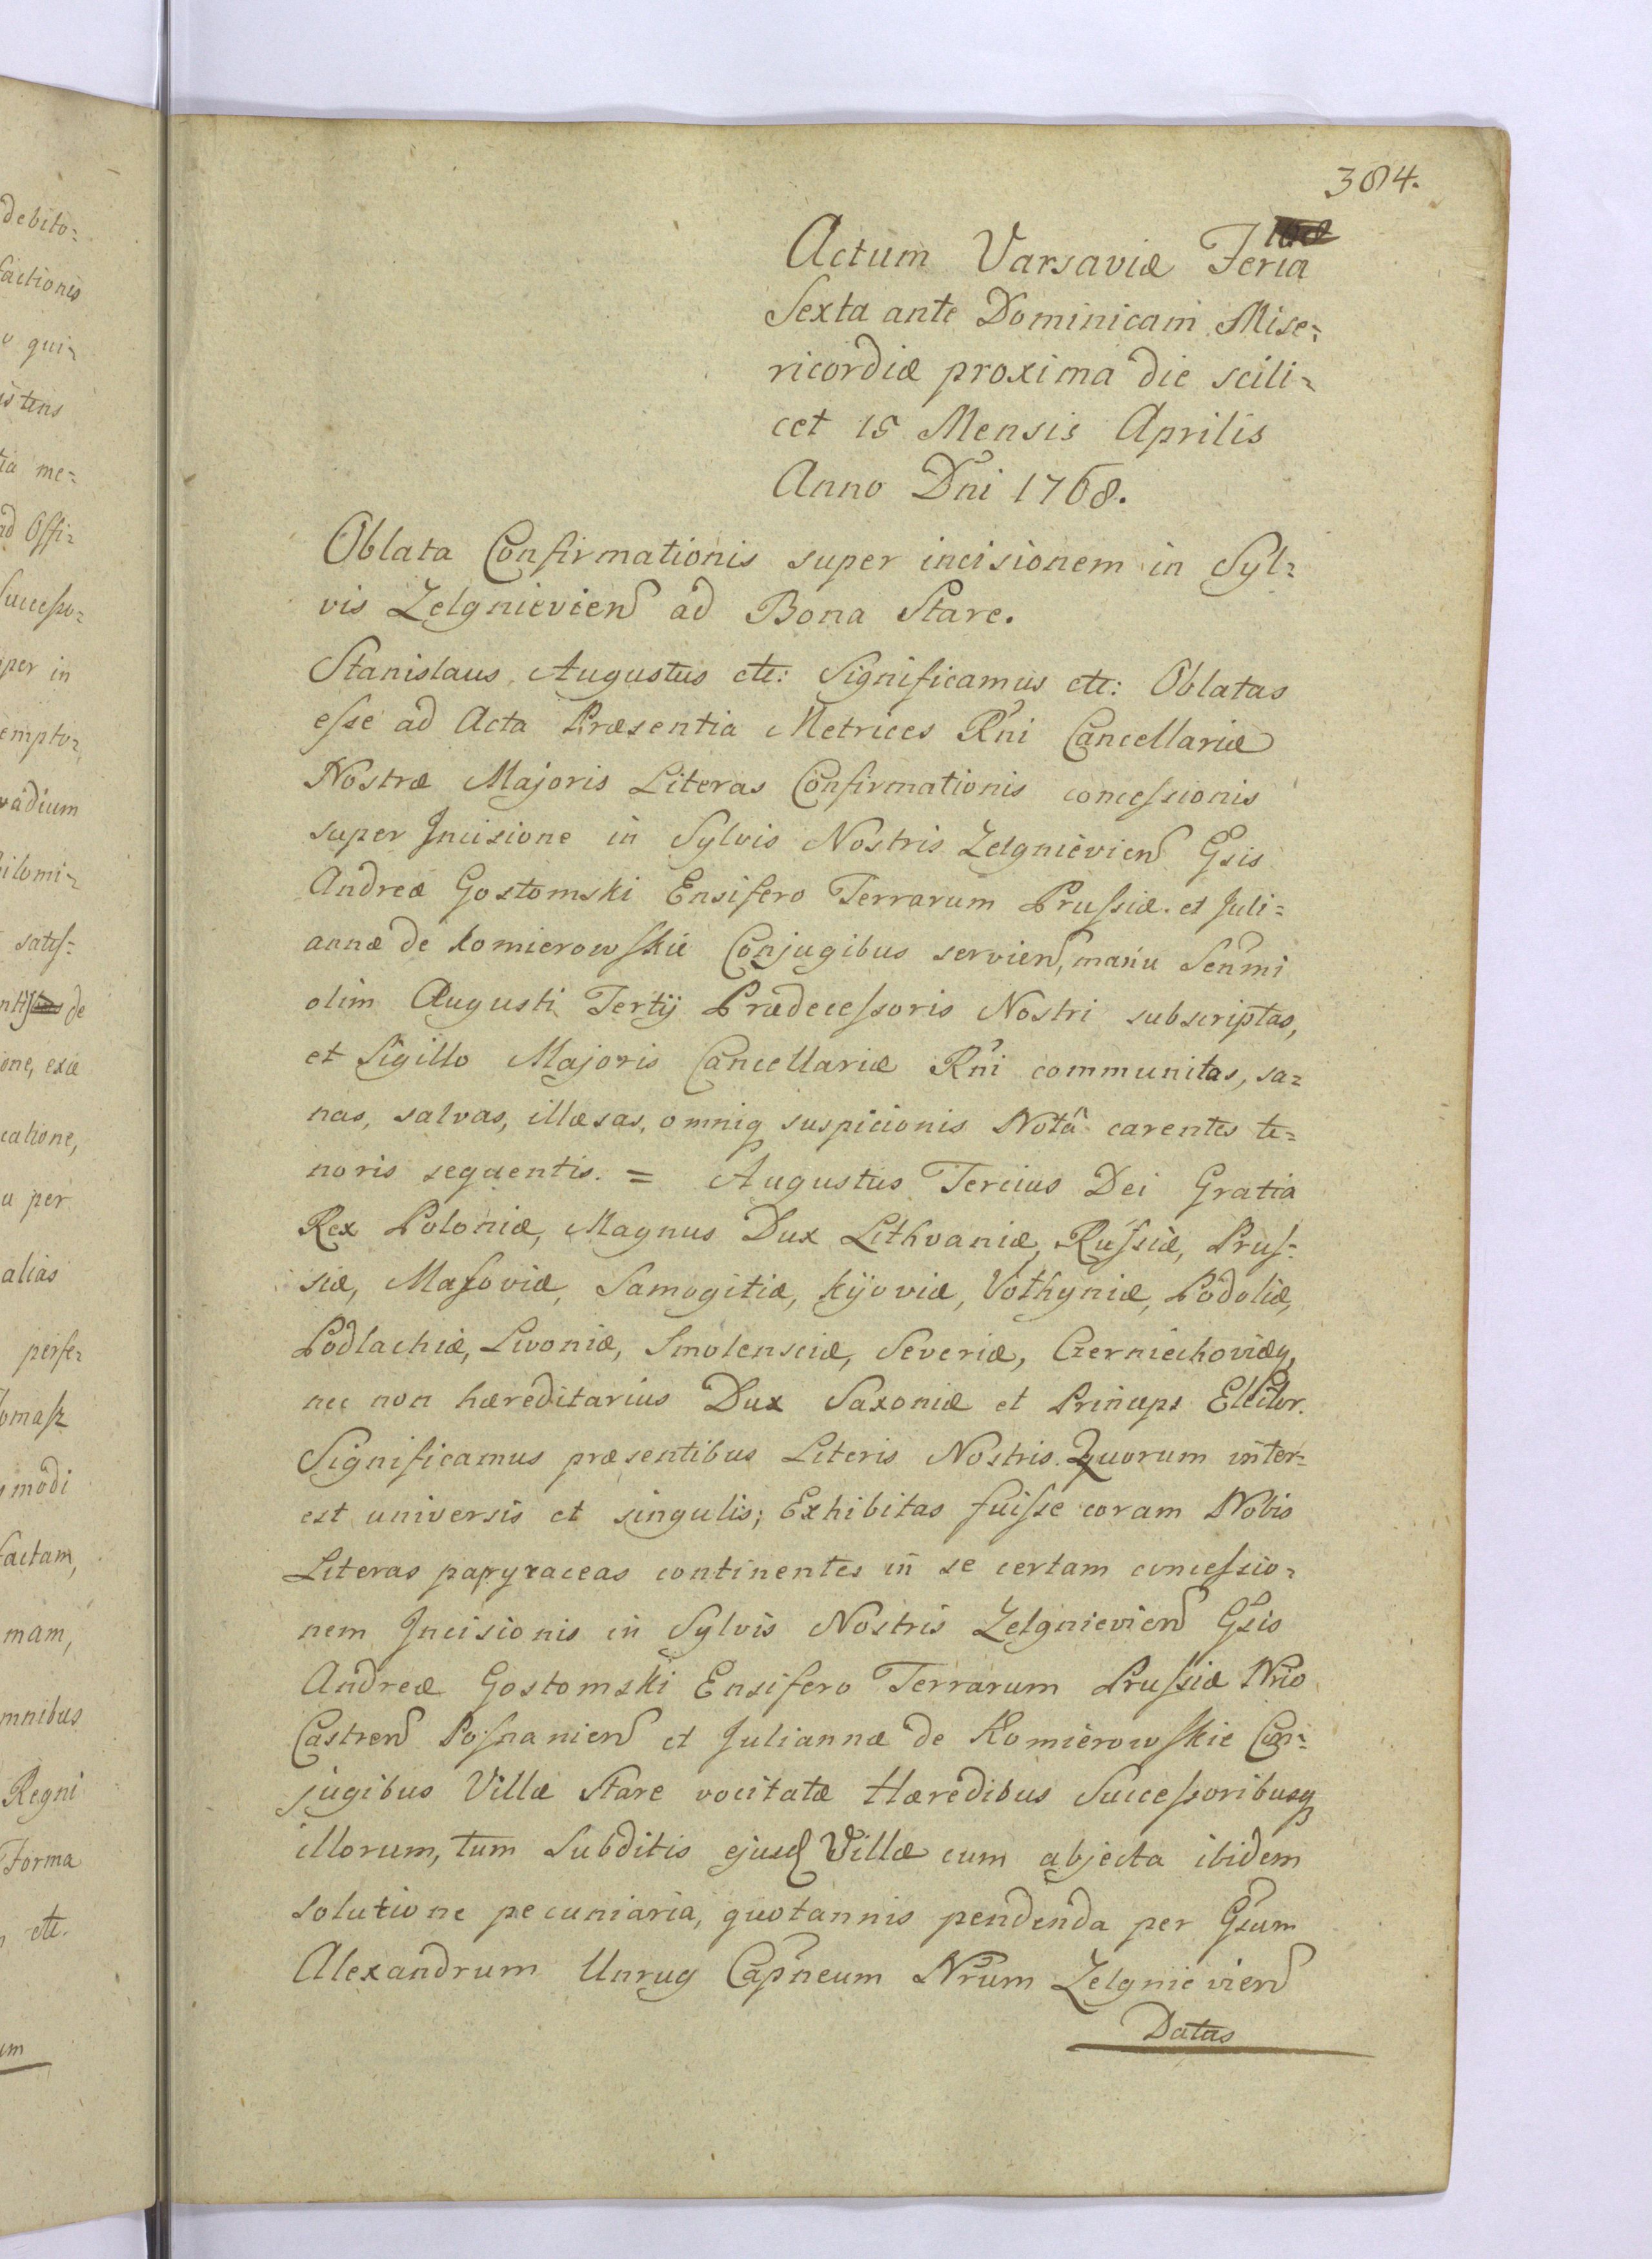 384.
Actum Varsaviæ Feria
Sexta ante Dominicam Mise=
ricordiæ proxima die scili=
cet 15 Mensis Aprilis
Anno Dni 1768.
Oblata Confirmationis super incisionem in Syl=
vis Zelgnievien ad Bona Stare.
Stanislaus Augustus etc: Significamus etc: Oblatas
esse ad Acta Præsentia Metrices Rni Cancellariæ
Nostræ Majoris Literas Confirmationis concessionis
super Incisione in Sylvis Nostris Zelgnievien Gsis
Andreæ Gostomski Ensifero Terrarum Prussiæ et Juli=
annæ de Komierowskie Conjugibus servien, manu Senmi
olim Augusti Tertij Prædecessoris Nostri subscriptas,
et Sigillo Majoris Cancellariæ Rni communitas, sa=
nas, salvas, illæsas, omniq suspicionis Notâ carentes te=
noris sequentis. = Augustus Tercius Dei Gratia
Rex Poloniæ, Magnus Dux Lithvaniæ, Russiæ, Prus=
siæ, Masoviæ, Samogitiæ, Kijoviæ, Volhyniæ, Podoliæ,
Podlachiæ, Livoniæ, Smolensciæ, Severiæ, Czerniechoviæq,
nec non hæreditarius Dux Saxoniæ et Princeps Elector.
Significamus præsentibus Literis Nostris Quorum inter=
est universis et singulis; Exhibitas fuisse coram Nobis
Literas papyraceas continentes in se certam concessio=
nem Incisionis in Sylvis Nostris Zelgnievien Gsis
Andreæ Gostomski Ensifero Terrarum Prussiæ Nrio
Castren Posnanien et Juliannæ de Komierowskie Con=
jugibus Villæ Stare vocitatæ Hæredibus Successoribusq
illorum, tum Subditis ejusd Villæ cum abjecta ibidem
solutione pecuniaria, quotannis pendenda per Gsum
Alexandrum Unrug Capneum Nrum Zelgnievien
Datas
debito=
factionis
qui=
istens
me=
ad Offi=
Successo=
per in
emptor=
vadium
satis=
de
ione, exæ
catione,
u per
alias
perfe=
modi
factam,
mam,
omnibus
Regni
Forma
etc.
um